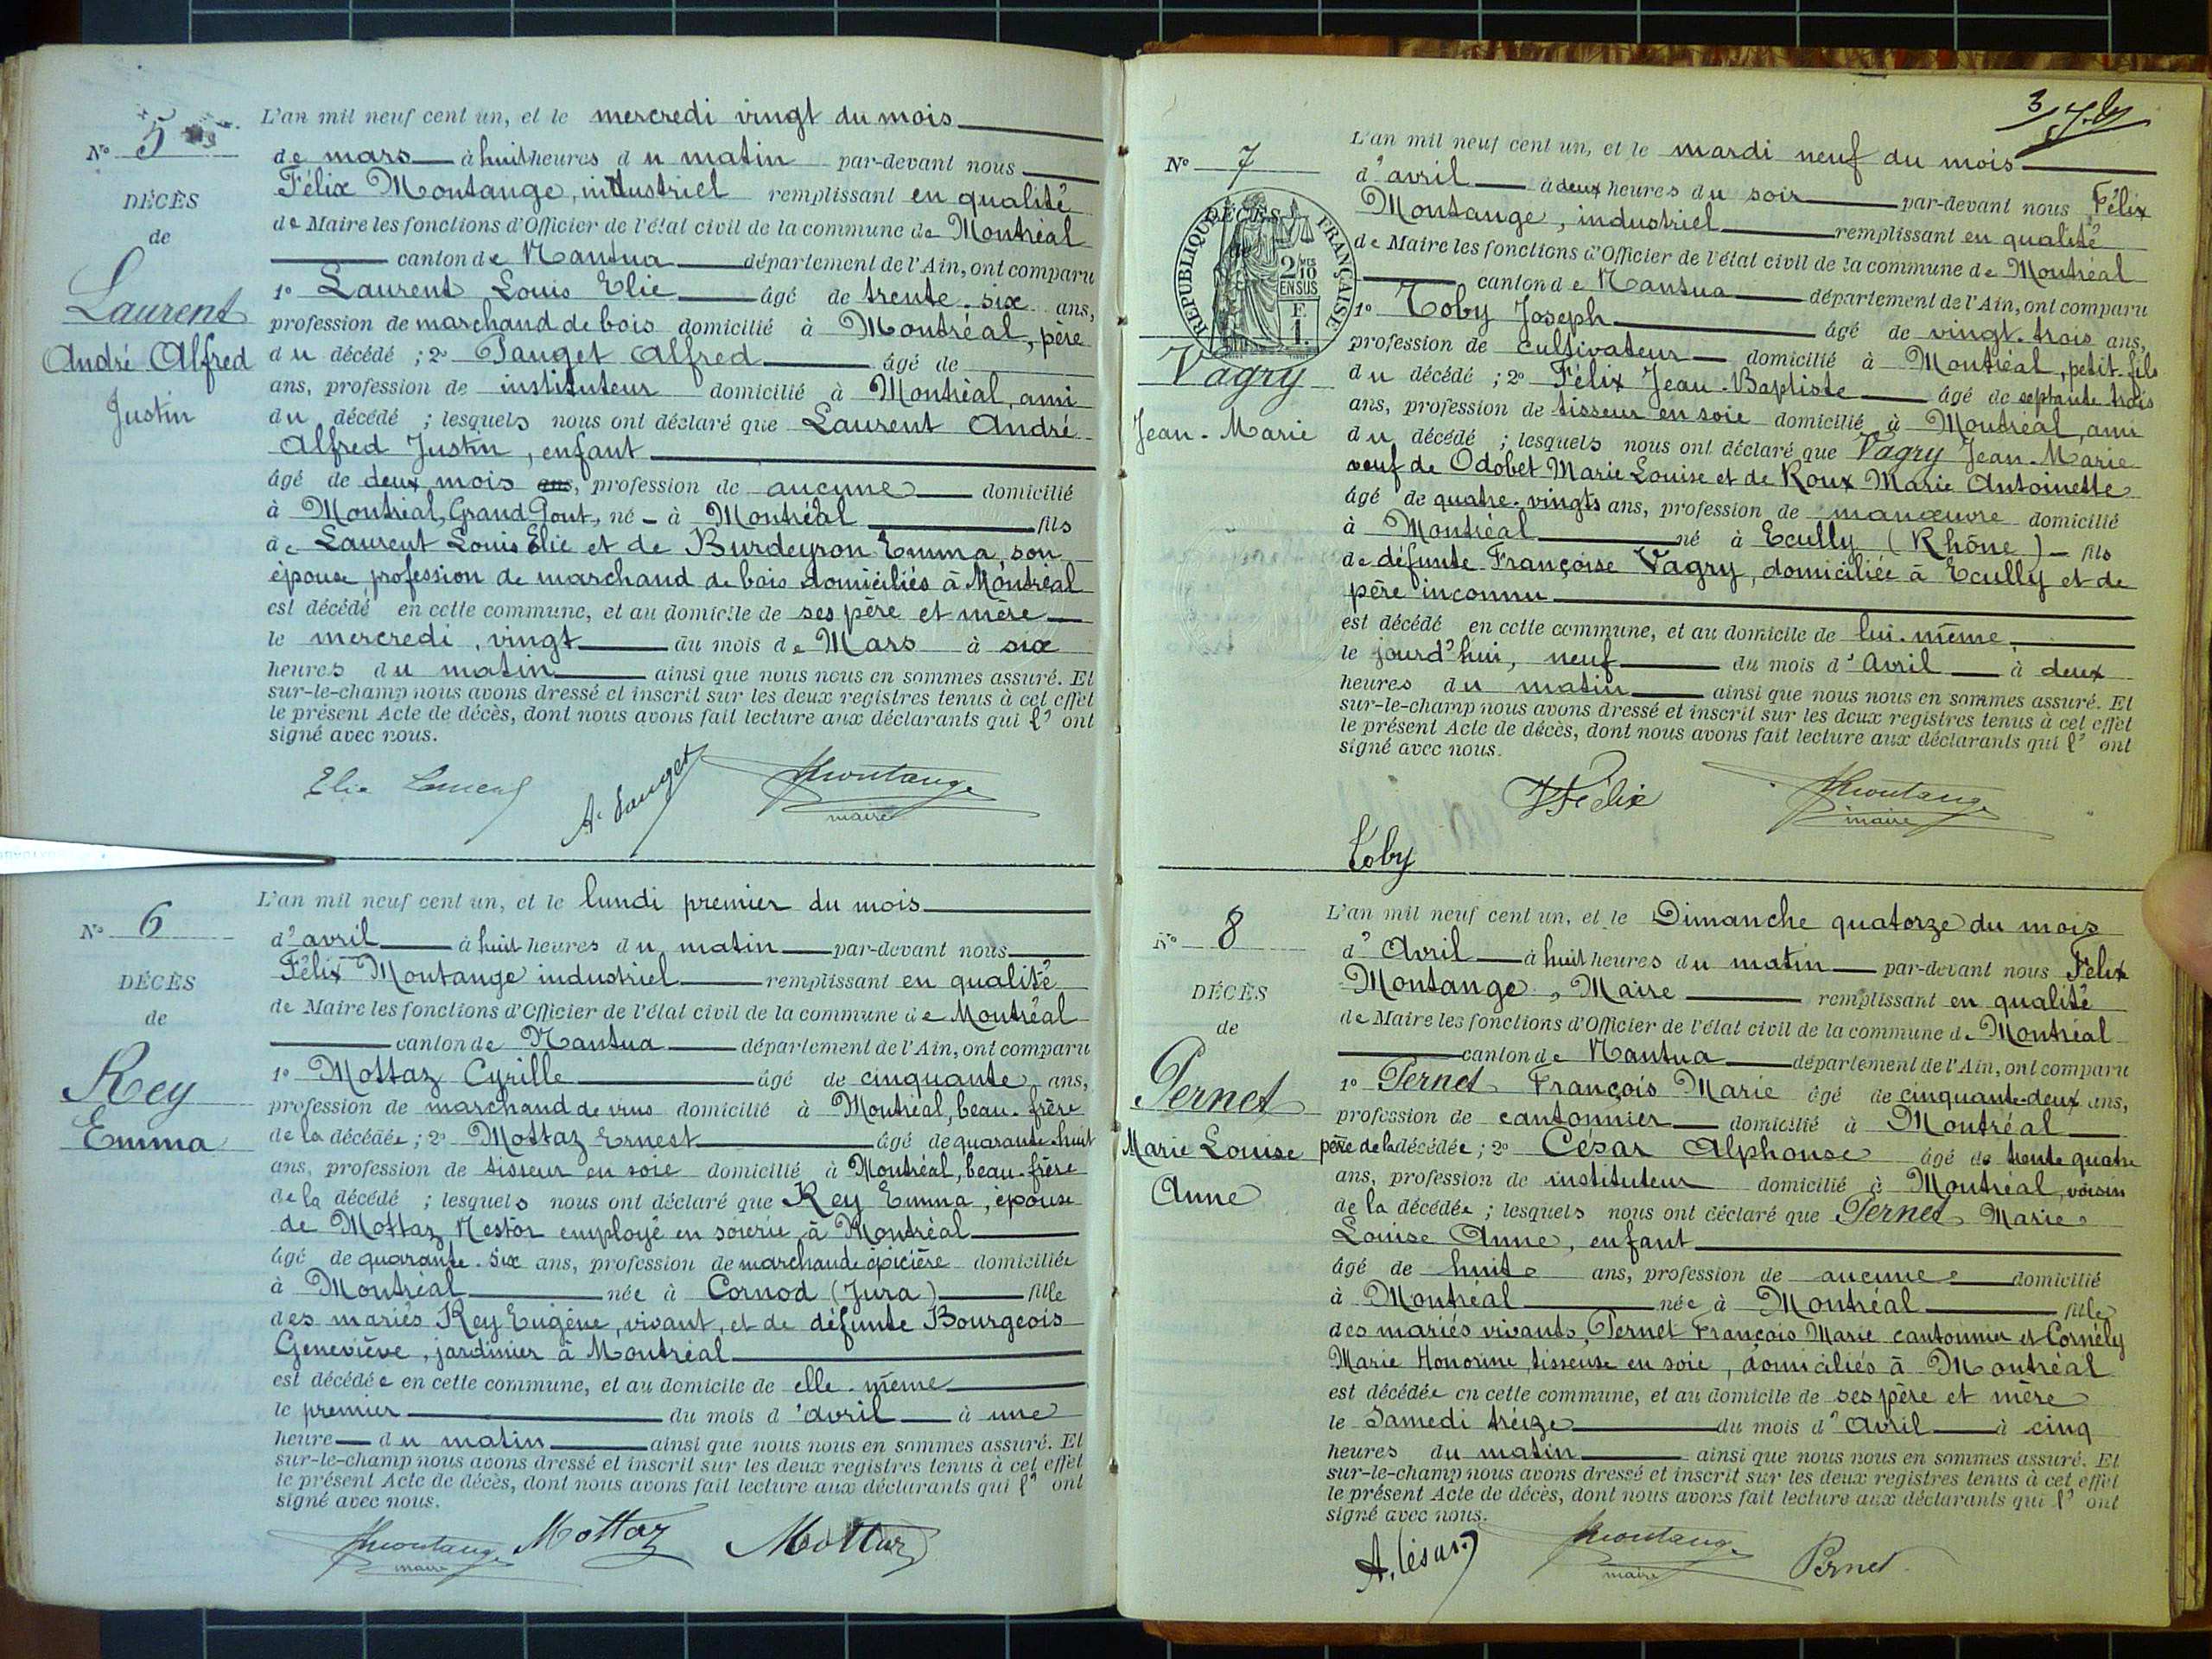 L'an mil neuf cent un, et le mercredi vingt du mois
N° 5
de mars à huit heures du matin par-devant nous
Félix Montange, industriel remplissant en qualité
DÉCÈS
de Maire les fonctions d'Officier de l'état civil de la commune de Montréal
de
canton de Nantua département de l'Ain, ont comparu
Laurent
1° Laurent Louis Elie âgé de trente-six ans,
profession de marchand de bois domicilié à Montréal, père
André Alfred
du décédé ; 2° Pauget Alfred âgé de
ans, profession de instituteur domicilié à Montréal, ami
Justin
du décédé ; lesquels nous ont déclaré que Laurent André
Alfred Justin, enfant
âgé de deux mois ans, profession de aucune domicilié
à Montréal, Grand Pont, né à Montréal fils
de Laurent Louis Elie et de Burdeyron Emma, son
épouse, profession de marchand de bois domiciliés à Montréal
est décédé en cette commune, et au domicile de ses père et mère
le mercredi, vingt du mois de Mars à six
heures du matin ainsi que nous nous en sommes assuré. Et
sur-le-champ nous avons dressé et inscrit sur les deux registres tenus à cet effet
le présent Acte de décès, dont nous avons fait lecture aux déclarants qui l' ont
signé avec nous.
Elie Laurent A. Pauget Montange
maire
L'an mil neuf cent un, et le lundi premier du mois
N° 6
d'avril à huit heures du matin par-devant nous
Félix Montange industriel remplissant en qualité
DÉCÈS
de Maire les fonctions d'Officier de l'état civil de la commune de Montréal
de
canton de Nantua département de l'Ain, ont comparu
Rey
1° Mottaz Cyrille âgé de cinquante ans,
profession de marchand de vins domicilié à Montréal, beau-frère
Emma
de la décédée ; 2° Mottaz Ernest âgé de quarante-huit
ans, profession de tisseur en soie domicilié à Montréal, beau-frère
de la décédé ; lesquels nous ont déclaré que Rey Emma, épouse
de Mottaz Nestor employé en soierie à Montréal
âgé de quarante-six ans, profession de marchande épicière domiciliée
à Montréal née à Cornod (Jura) fille
des mariés Rey Eugène, vivant, et de défunte Bourgeois
Geneviève, jardinier à Montréal
est décédée en cette commune, et au domicile de elle-même
le premier du mois d'avril à une
heure du matin ainsi que nous nous en sommes assuré. Et
sur-le-champ nous avons dressé et inscrit sur les deux registres tenus à cet effet
le présent Acte de décès, dont nous avons fait lecture aux déclarants qui l' ont
signé avec nous.
Montange Mottaz Mottaz
maire
3
L'an mil neuf cent un, et le mardi neuf du mois
N° 7
d'avril à deux heures du soir par-devant nous Félix
DÉCÈS
Montange, industriel remplissant en qualité
de Maire les fonctions d'Officier de l'état civil de la commune de Montréal
RÉPUBLIQUE FRANÇAISE
2/10 EN SUS
F. 1.
canton de Nantua département de l'Ain, ont comparu
1° Toby Joseph âgé de vingt-trois ans,
profession de cultivateur domicilié à Montréal, petit-fils
Vagry
du décédé ; 2° Félix Jean-Baptiste âgé de septante trois
ans, profession de tisseur en soie domicilié à Montréal, ami
Jean-Marie
du décédé ; lesquels nous ont déclaré que Vagry Jean-Marie
veuf de Odobet Marie Louise et de Roux Marie Antoinette
âgé de quatre-vingts ans, profession de manœuvre domicilié
à Montréal né à Ecully (Rhône) fils
de défunte Françoise Vagry, domiciliée à Ecully et de
père inconnu
est décédé en cette commune, et au domicile de lui-même
le jourd'hui, neuf du mois d'Avril à deux
heures du matin ainsi que nous nous en sommes assuré. Et
sur-le-champ nous avons dressé et inscrit sur les deux registres tenus à cet effet
le présent Acte de décès, dont nous avons fait lecture aux déclarants qui l' ont
signé avec nous.
Félix Montange
maire
Toby
L'an mil neuf cent un, et le Dimanche quatorze du mois
N° 8
d'Avril à huit heures du matin par-devant nous Félix
DÉCÈS
Montange, Maire remplissant en qualité
de
de Maire les fonctions d'Officier de l'état civil de la commune de Montréal
canton de Nantua département de l'Ain, ont comparu
Pernet
1° Pernet François Marie âgé de cinquante-deux ans,
profession de cantonnier domicilié à Montréal
Marie Louise
père de la décédée ; 2° César Alphonse âgé de trente quatre
Anne
ans, profession de instituteur domicilié à Montréal, voisin
de la décédée ; lesquels nous ont déclaré que Pernet Marie
Louise Anne, enfant
âgé de huit ans, profession de aucune domicilié
à Montréal née à Montréal fille
des mariés vivants, Pernet François Marie cantonnier et Cornély
Marie Honorine, tisseuse en soie, domiciliés à Montréal
est décédée en cette commune, et au domicile de ses père et mère
le Samedi treize du mois d'Avril à cinq
heures du matin ainsi que nous nous en sommes assuré. Et
sur-le-champ nous avons dressé et inscrit sur les deux registres tenus à cet effet
le présent Acte de décès, dont nous avons fait lecture aux déclarants qui l' ont
signé avec nous.
A. César Montange Pernet
maire